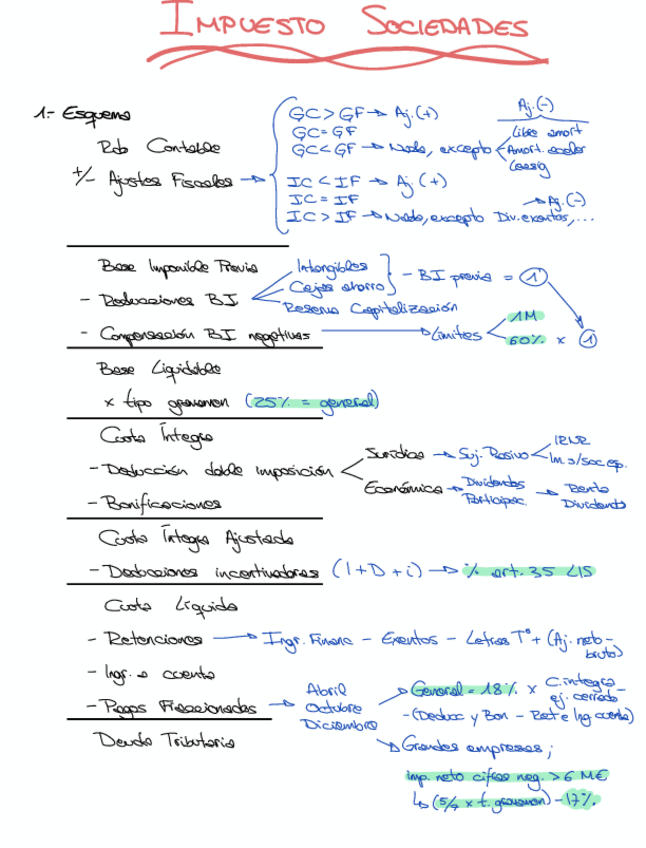 IMPUESTO SOCIEDADES
1.- Esquema
Rdo Contable
+/- Ajustes Fiscales →
GC > GF → Aj. (+)
GC = GF
GC < GF → Nada, excepto
Aj. (-)
Libre amort
Amort. aceler
Leasig
IC < IF → Aj (+)
IC = IF
→ Aj. (-)
IC > IF → Nada, excepto Div. exentos, ...
Base Imponible Previa
- Reducciones BI
Intangibles
Cajas ahorro
- BI previa = 1
Reserva Capitalización
- Compensación BI negativas → Límites
1M
60% x 1
Base Liquidable
x tipo gravamen (25% = general)
Cuota Íntegra
- Deducción doble imposición
Jurídica → Suj. Pasivo
IRNR
Im. s/soc. esp.
Económica → Dividendos
Participac.
→ Renta
Dividendo
- Bonificaciones
Cuota Íntegra Ajustada
- Deducciones incentivadoras (I + D + i) → % art. 35 LIS
Cuota Líquida
- Retenciones → Ingr. Financ - Exentos - Letras Tº + (Aj. neto-
bruto)
- Ingr. a cuenta
- Pagos Fraccionados →
Abril
Octubre
Diciembre
→ General = 18% x C. integra
ej. cerrado -
- (Deducc y Bon - Ret e Ing cuenta)
Deuda Tributaria
→ Grandes empresas;
imp. neto cifras neg. > 6 M€
↳ (5/7 x t. gravamen) - 17%